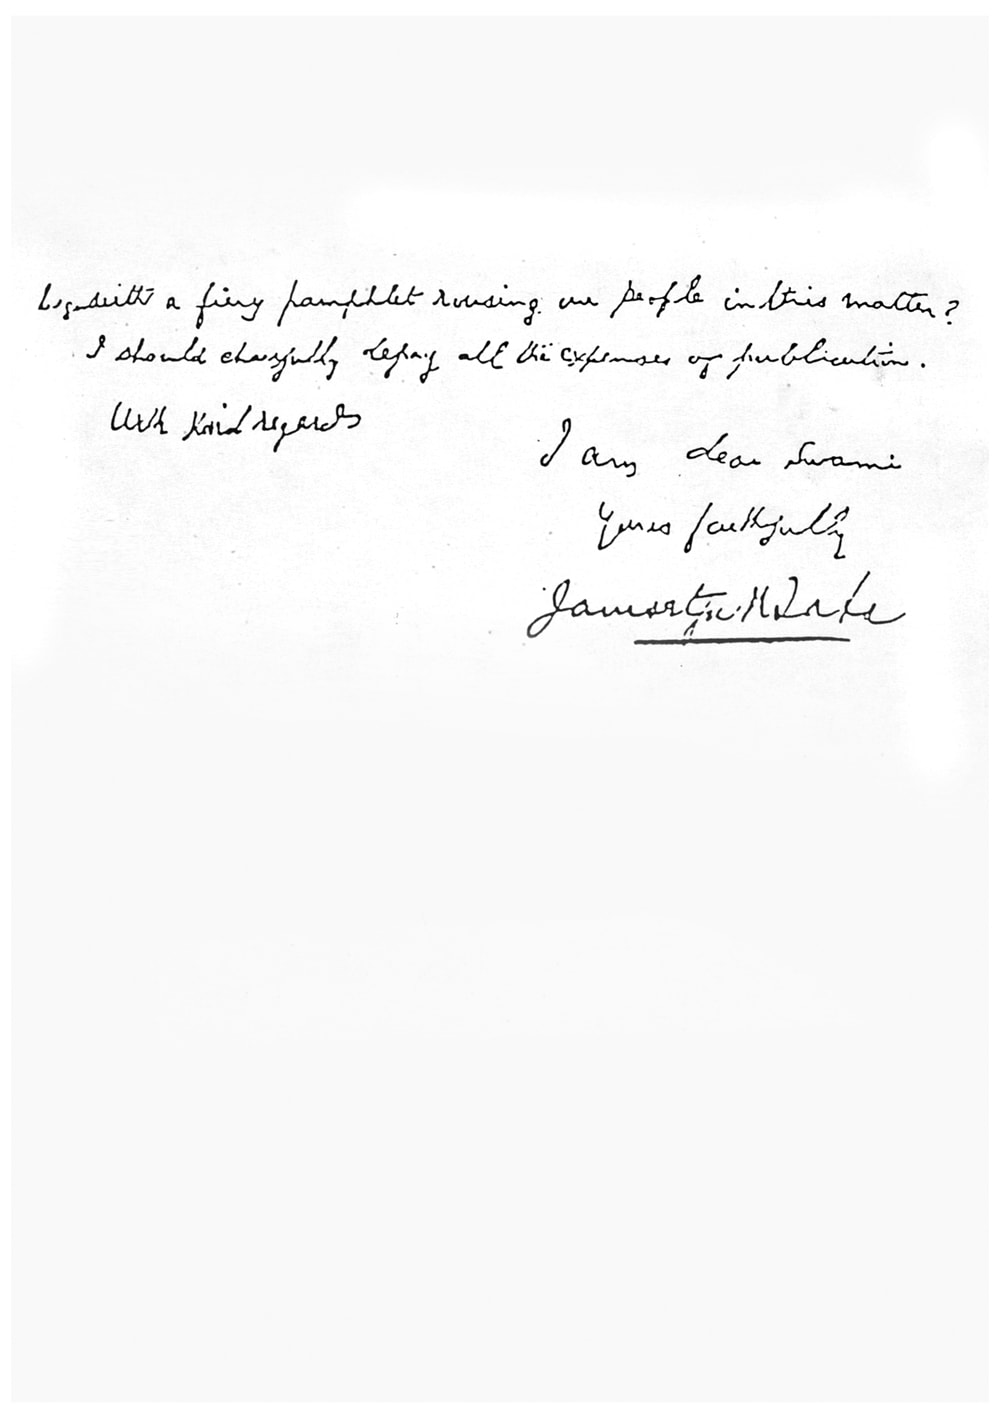 begin with a fiery pamphlet rousing our people in this matter?
I should cheerfully defray all the expenses of publication.
With kind regards
I am, dear Swami
Yours faithfully
Jamsetji N. Tata